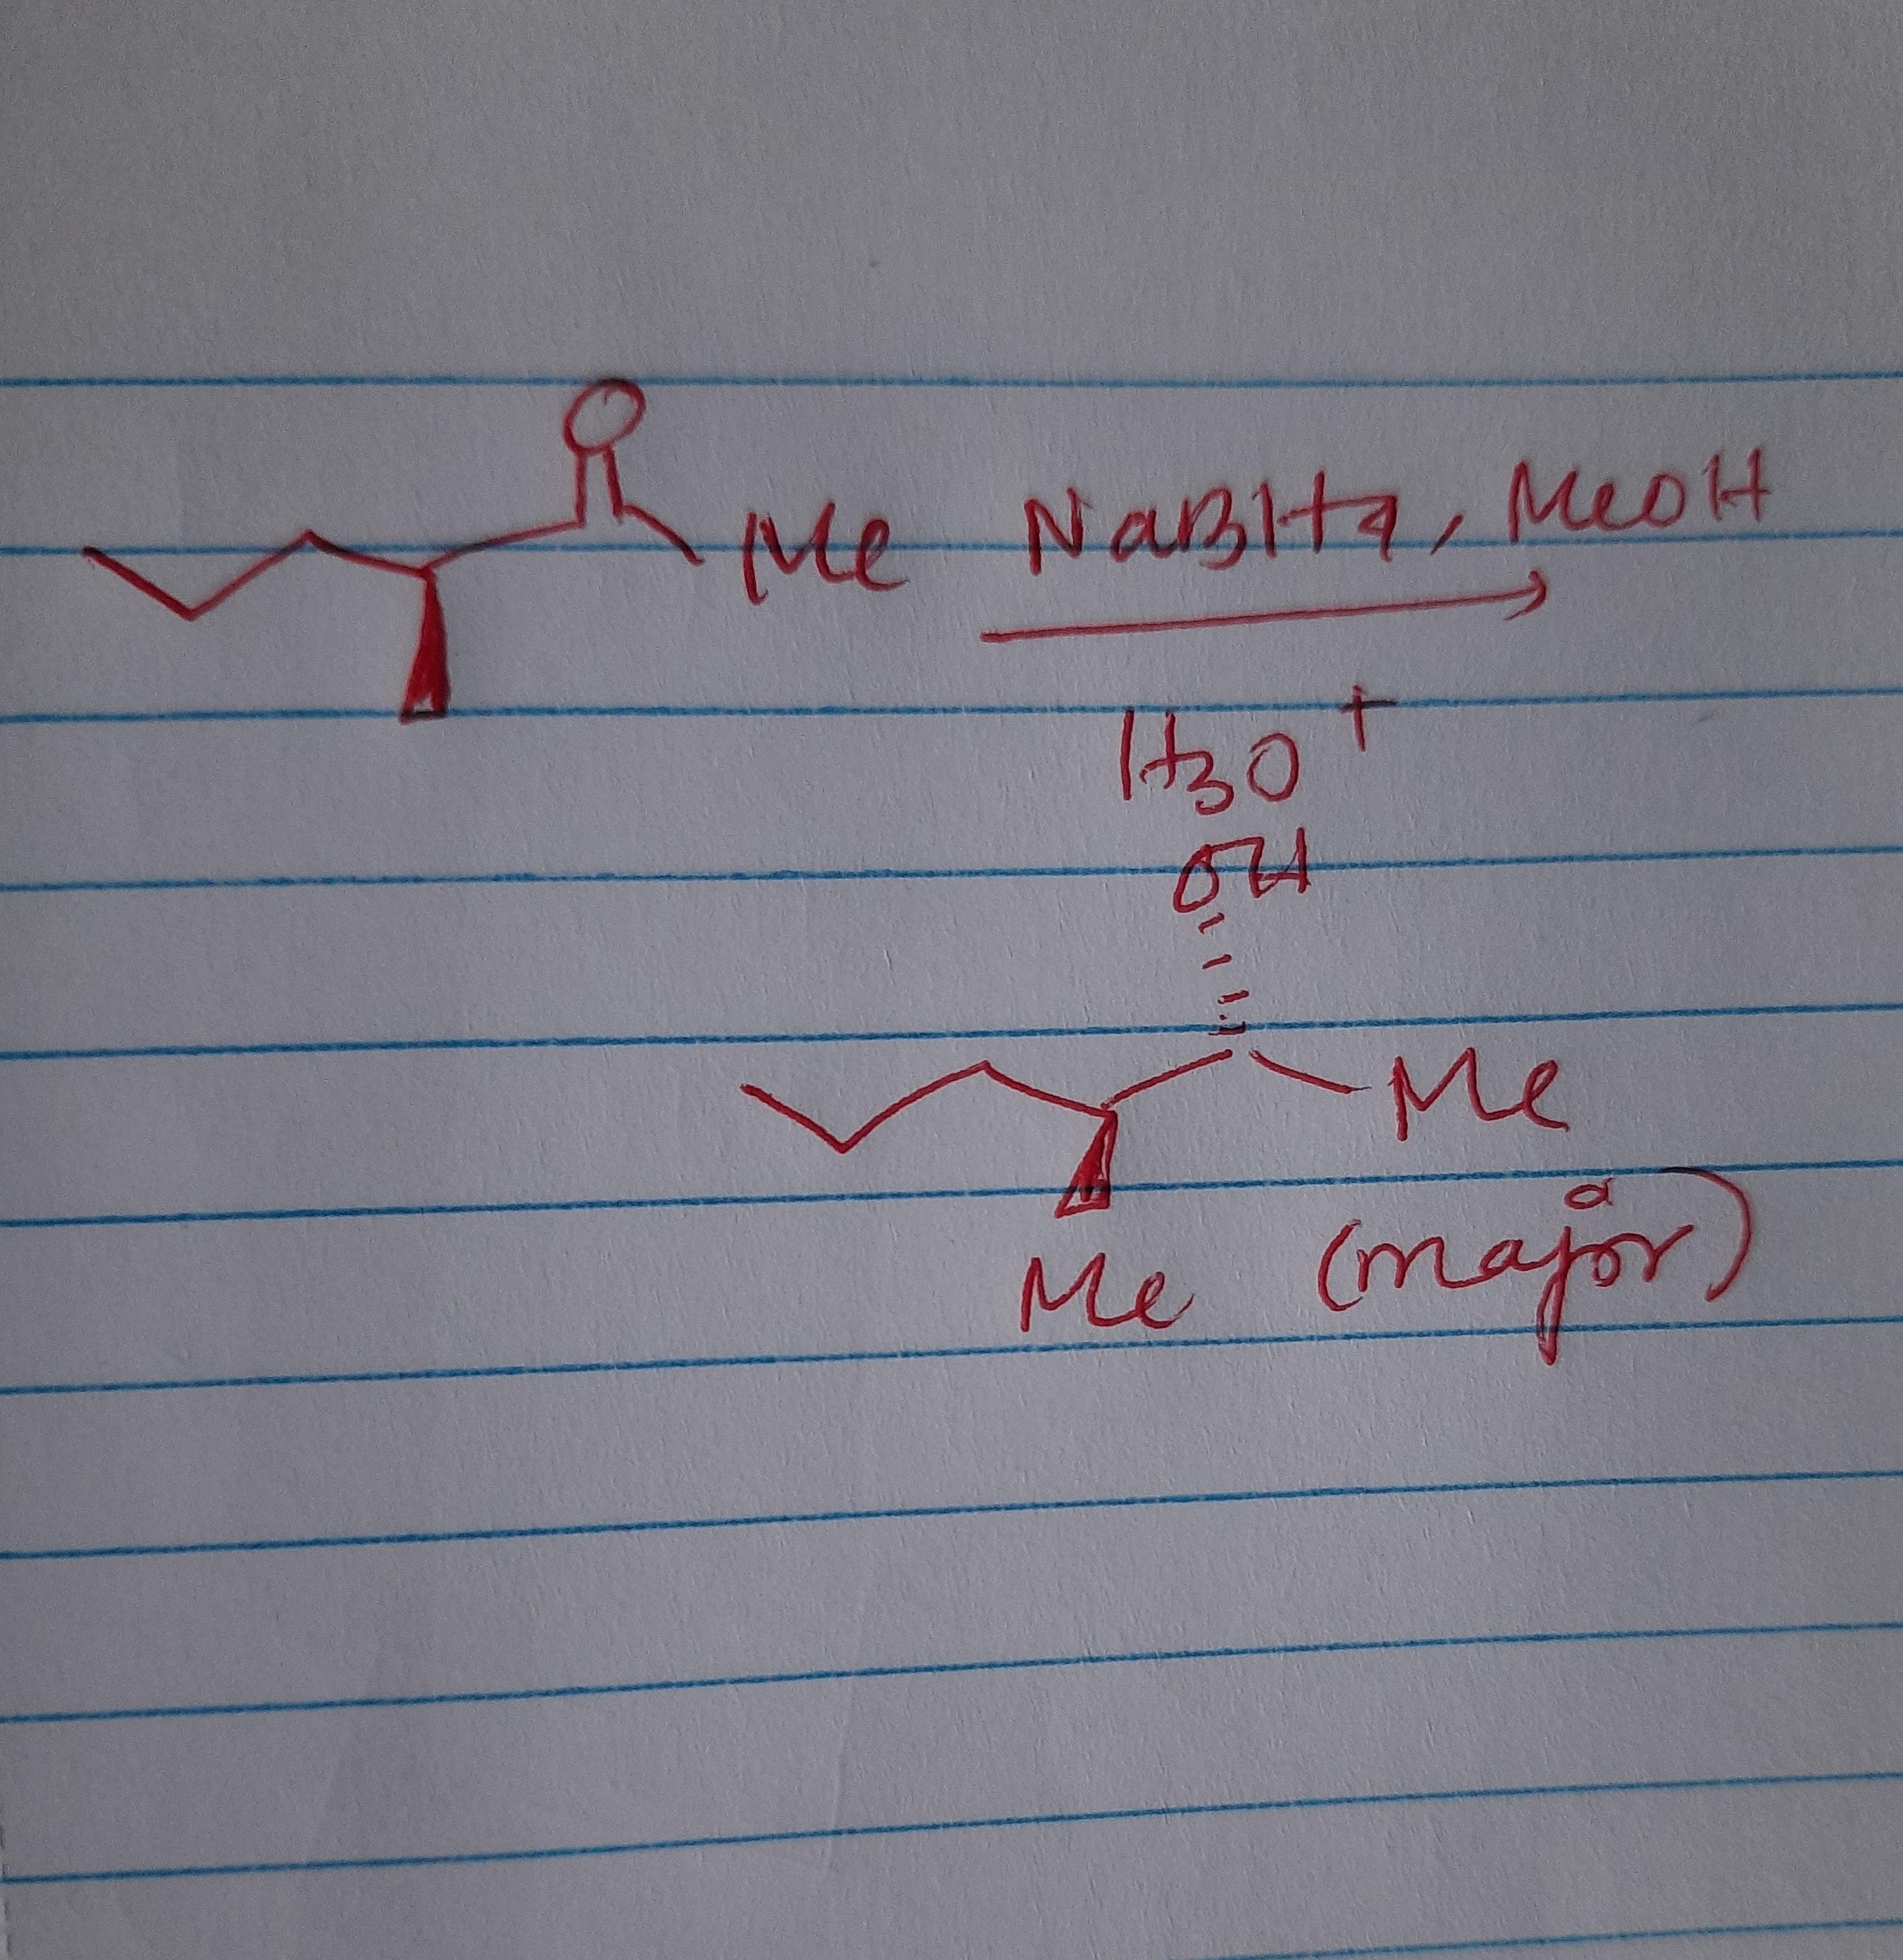 O
Me NaBH4, MeOH
H3O+
OH
Me
Me (major)